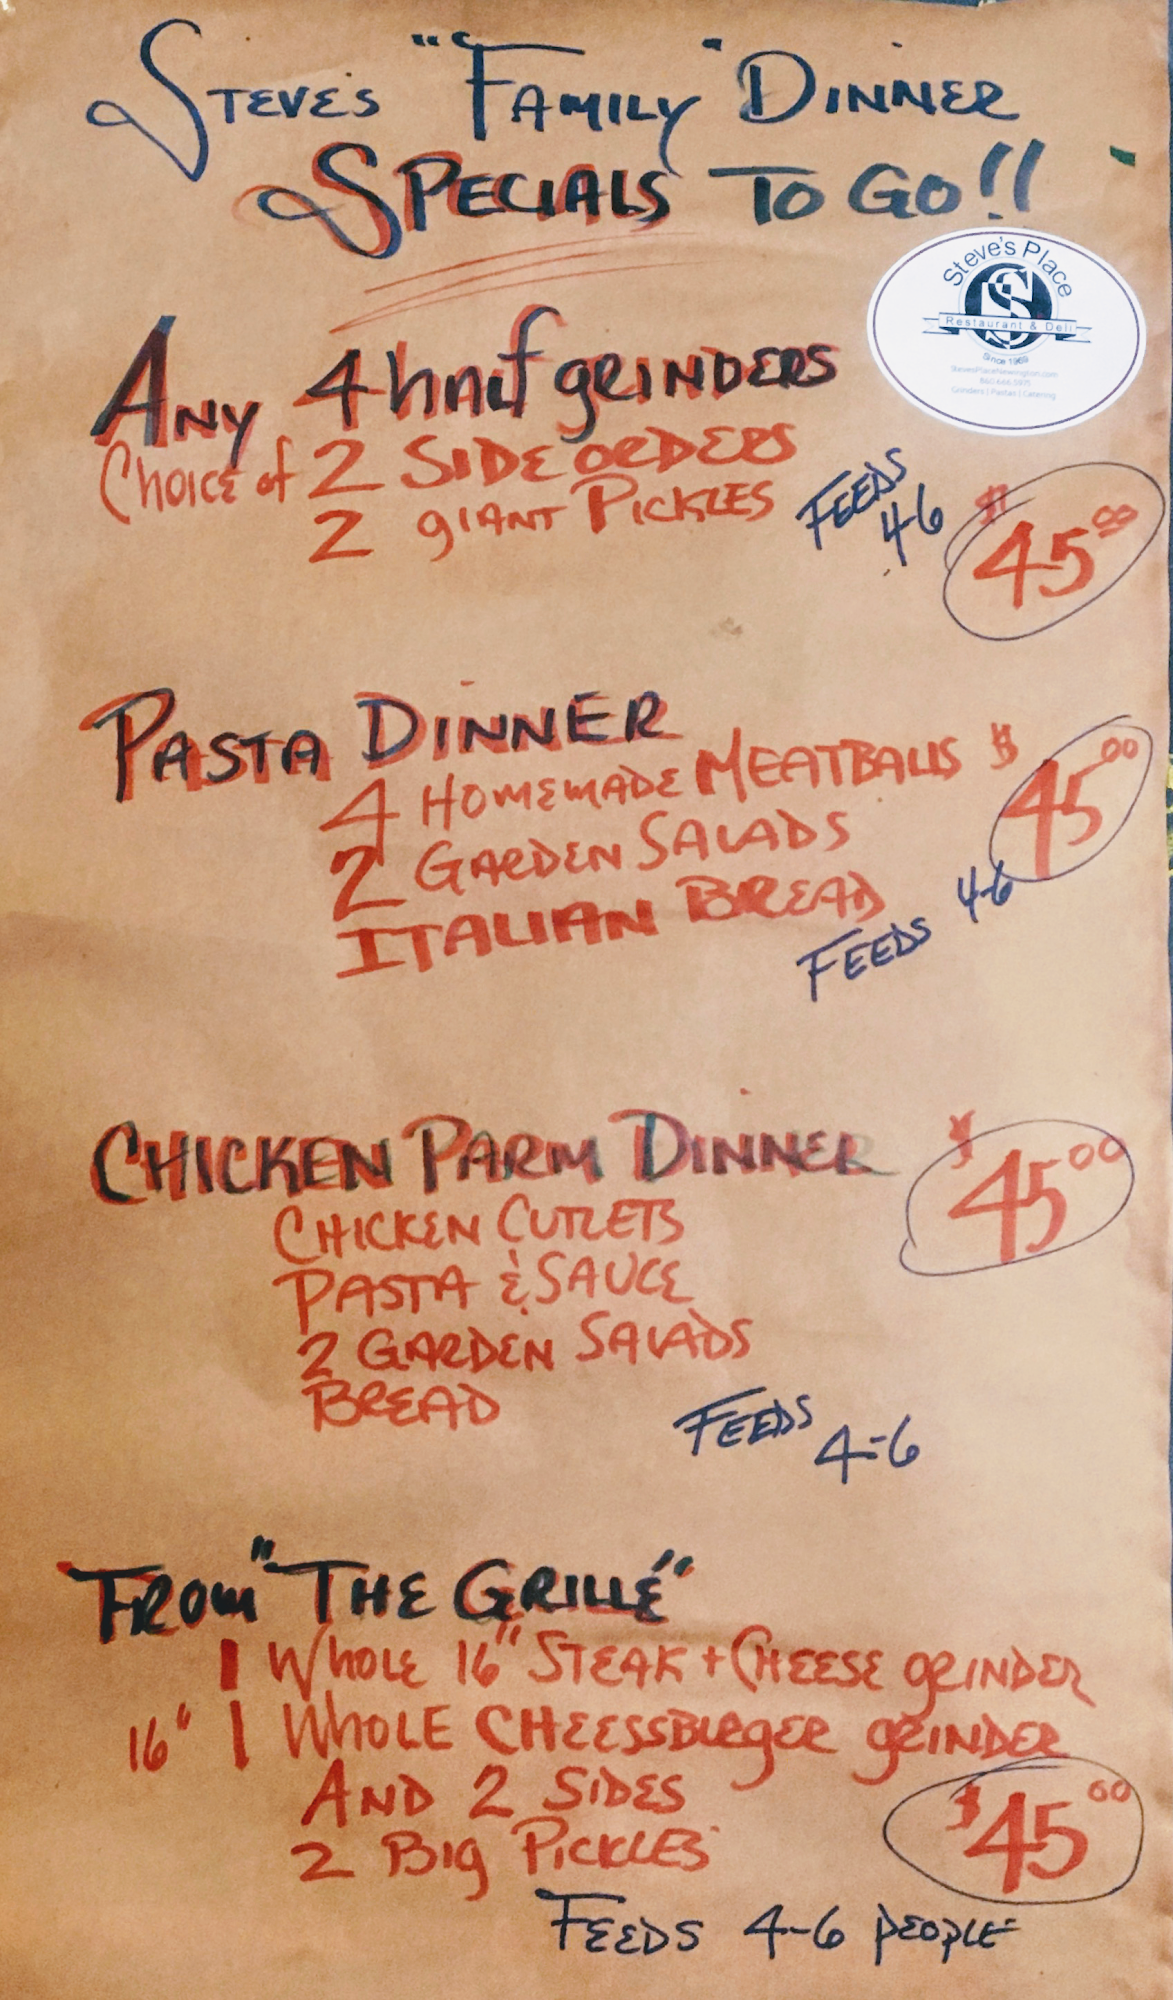 STEVE'S "FAMILY" DINNER
SPECIALS TO GO!!
Steve's Place
Restaurant & Deli
Since 1969
StevesPlaceNewington.com
860.666.5975
Grinders | Pastas | Catering
ANY 4 half grINDERS
Choice of 2 SIDE ORDERS
2 gIANT PICKLES
FEEDS
4-6
$45.00
PASTA DINNER
4 HOMEMADE MEATBALLS
$45.00
2 GARDEN SALADS
ITALIAN BREAD
FEEDS 4-6
CHICKEN PARM DINNER
$45.00
CHICKEN CUTLETS
PASTA & SAUCE
2 GARDEN SALADS
BREAD
FEEDS 4-6
FROM "THE GRILLE"
1 WHOLE 16" STEAK + CHEESE grINDER
16" 1 WHOLE CHEESSBURgER grINDER
AND 2 SIDES
2 BIg PICKLES
$45.00
FEEDS 4-6 PEOPLE